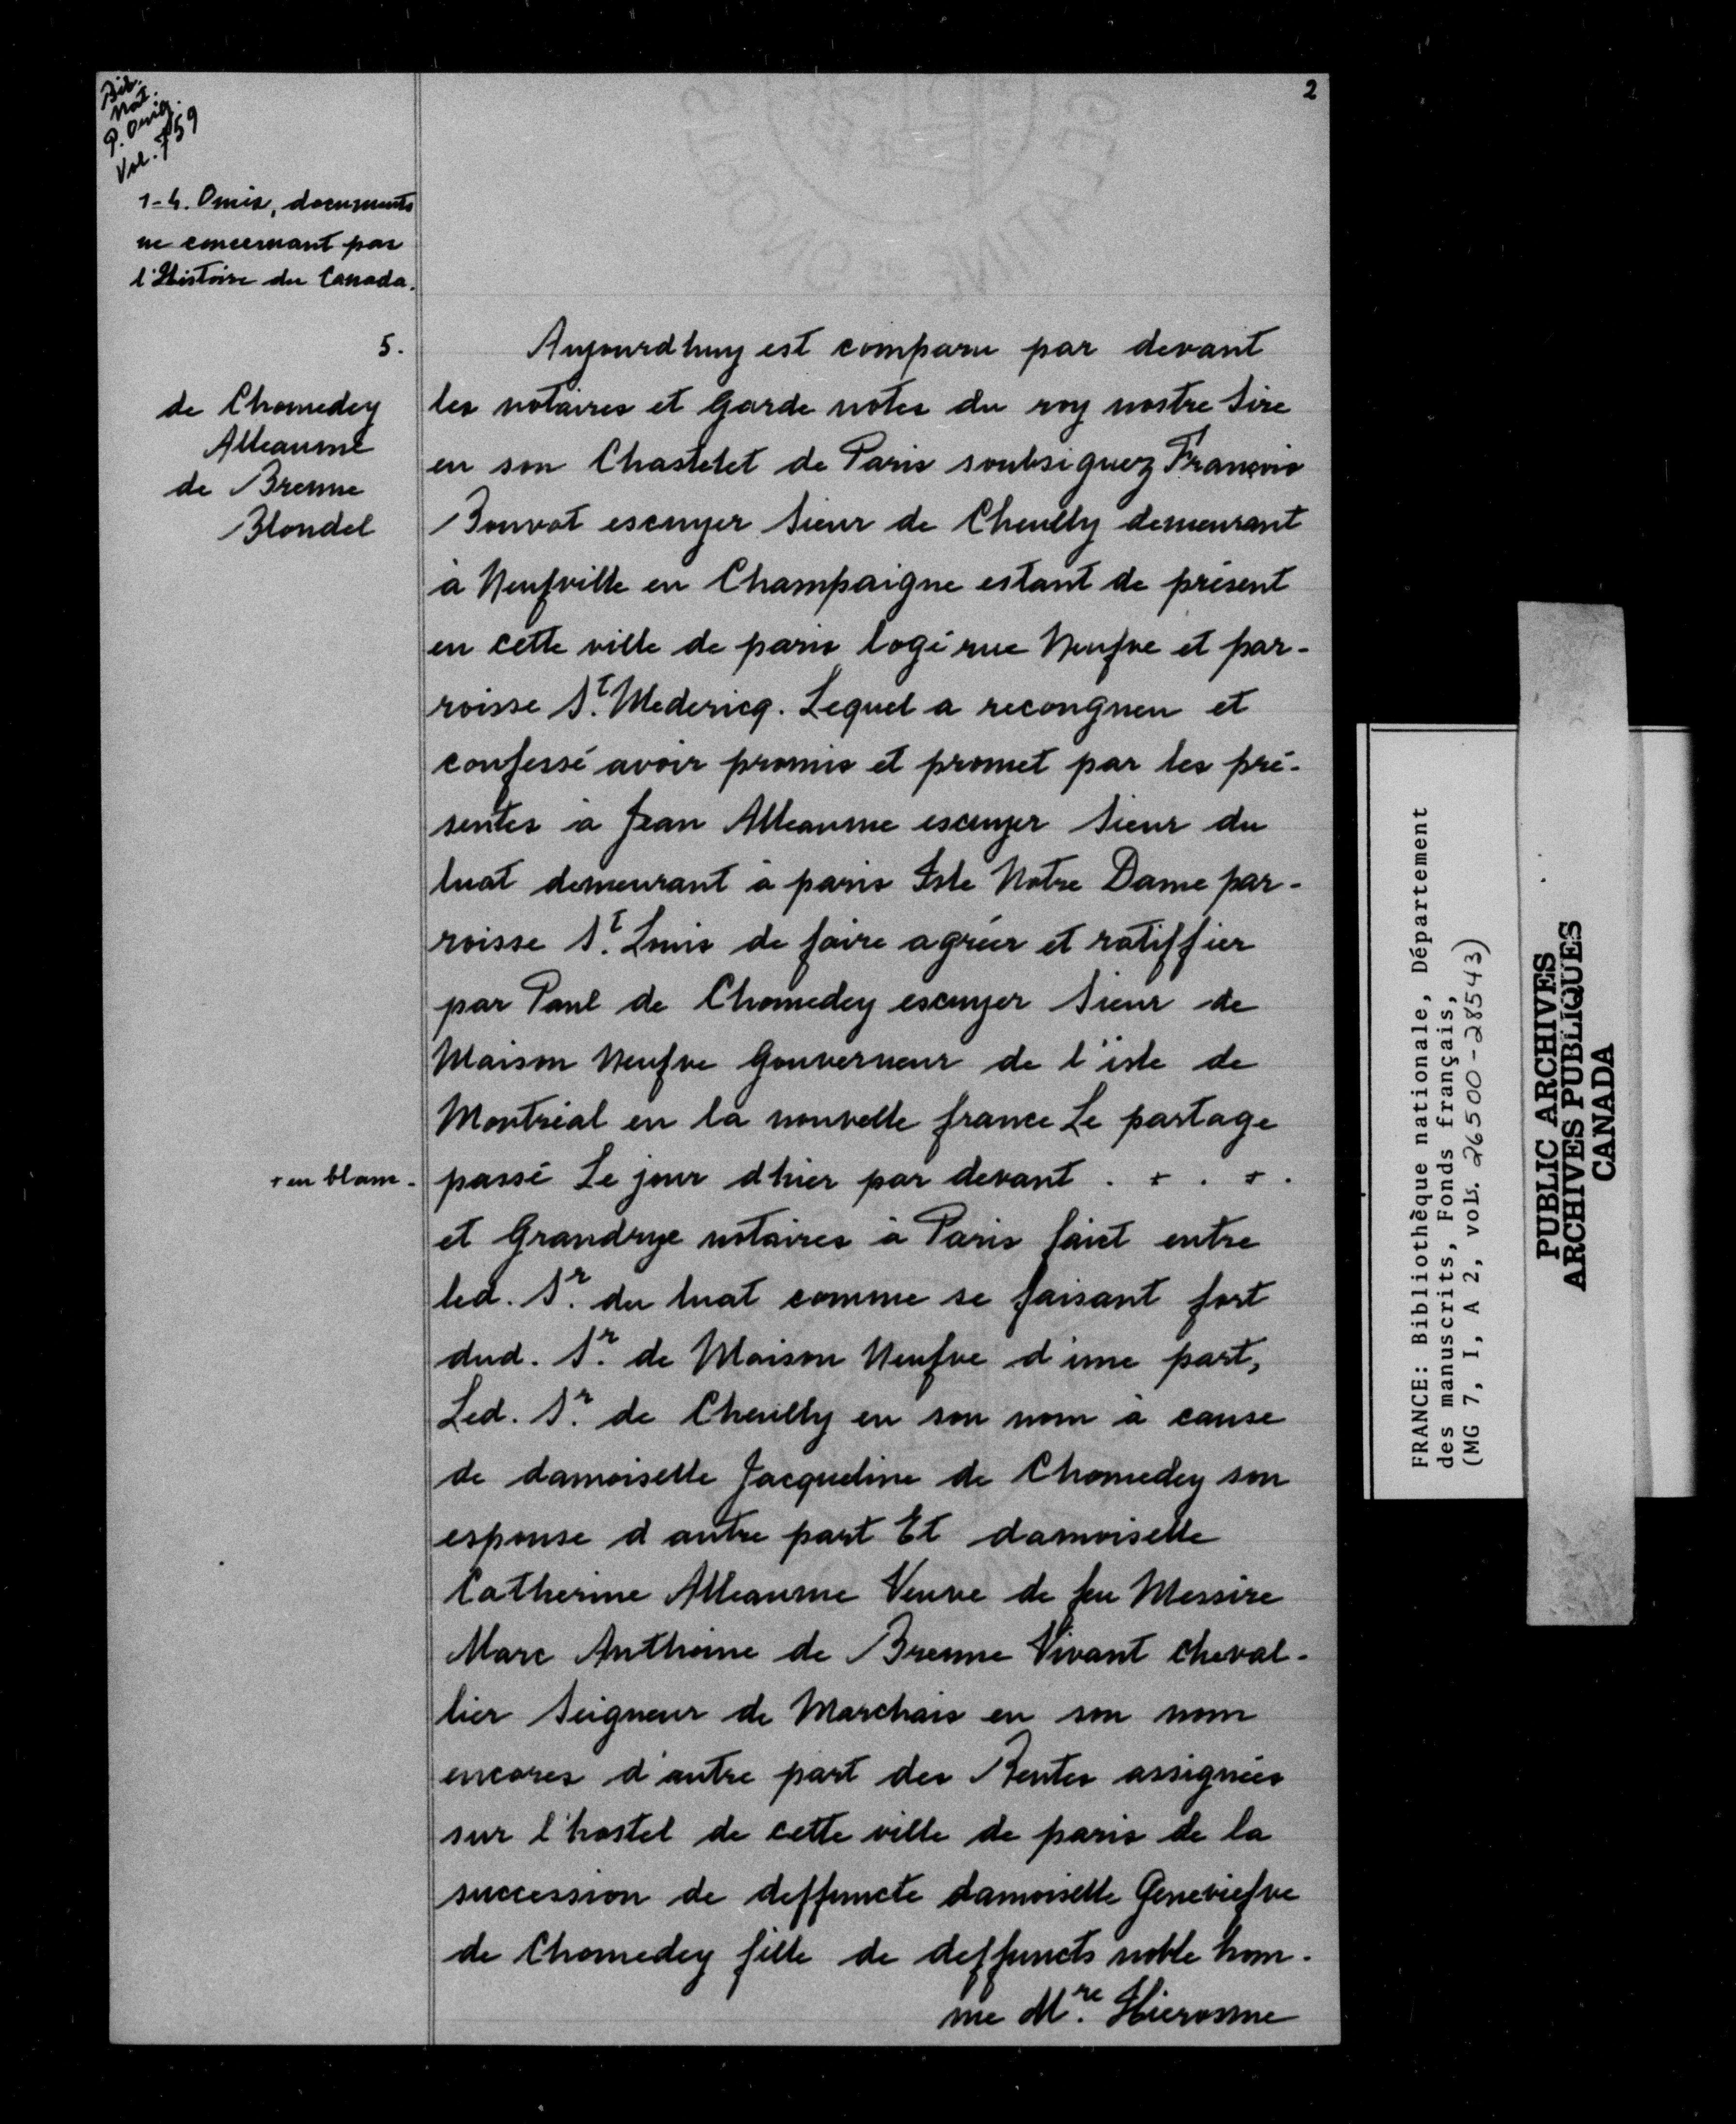 2
Bib.
Nat.
P. Orig.
Vol. 759
1-4. Omis, documents
ne concernant pas
l'Histoire du Canada.
5.
de Chomedey
Alleaume
de Brenne
Blondel
Aujourdhuy est comparu par devant
les notaires et Garde notes du roy nostre Sire
en son Chastelet de Paris soubsignez François
Bouvot escuyer Sieur de Cheuilly demeurant
à Neufville en Champaigne estant de présent
en cette ville de paris logé rue Neufve et par-
roisse St. Medericq. Lequel a recongneu et
confessé avoir promis et promet par les pré-
sentes à Jean Alleaume escuyer Sieur du
luat demeurant à paris Isle Notre Dame par-
roisse St. Louis de faire agréer et ratiffier
par Paul de Chomedey escuyer Sieur de
Maison Neufve Gouverneur de l'isle de
Montréal en la nouvelle france Le partage
+ en blanc.
passé Le jour dhier par devant . + . + .
et Grandrye notaires à Paris faict entre
led. Sr. du luat comme se faisant fort
dud. Sr. de Maison Neufve d'une part,
Led. Sr. de Cheuilly en son nom à cause
de damoiselle Jacqueline de Chomedey son
espouse d'autre part Et damoiselle
Catherine Alleaume Veuve de feu Messire
Marc Anthoine de Brenne Vivant cheval-
lier Seigneur de Marchais en son nom
encores d'autre part des Rentes assignées
sur l'hostel de cette ville de paris de la
succession de deffuncte damoiselle Geneviefve
de Chomedey fille de deffuncts noble hom-
me Mre. Hierosme
FRANCE: Bibliothèque nationale, Département
des manuscrits, Fonds français,
(MG 7, I, A 2, vols. 26500-28543)
PUBLIC ARCHIVES
ARCHIVES PUBLIQUES
CANADA